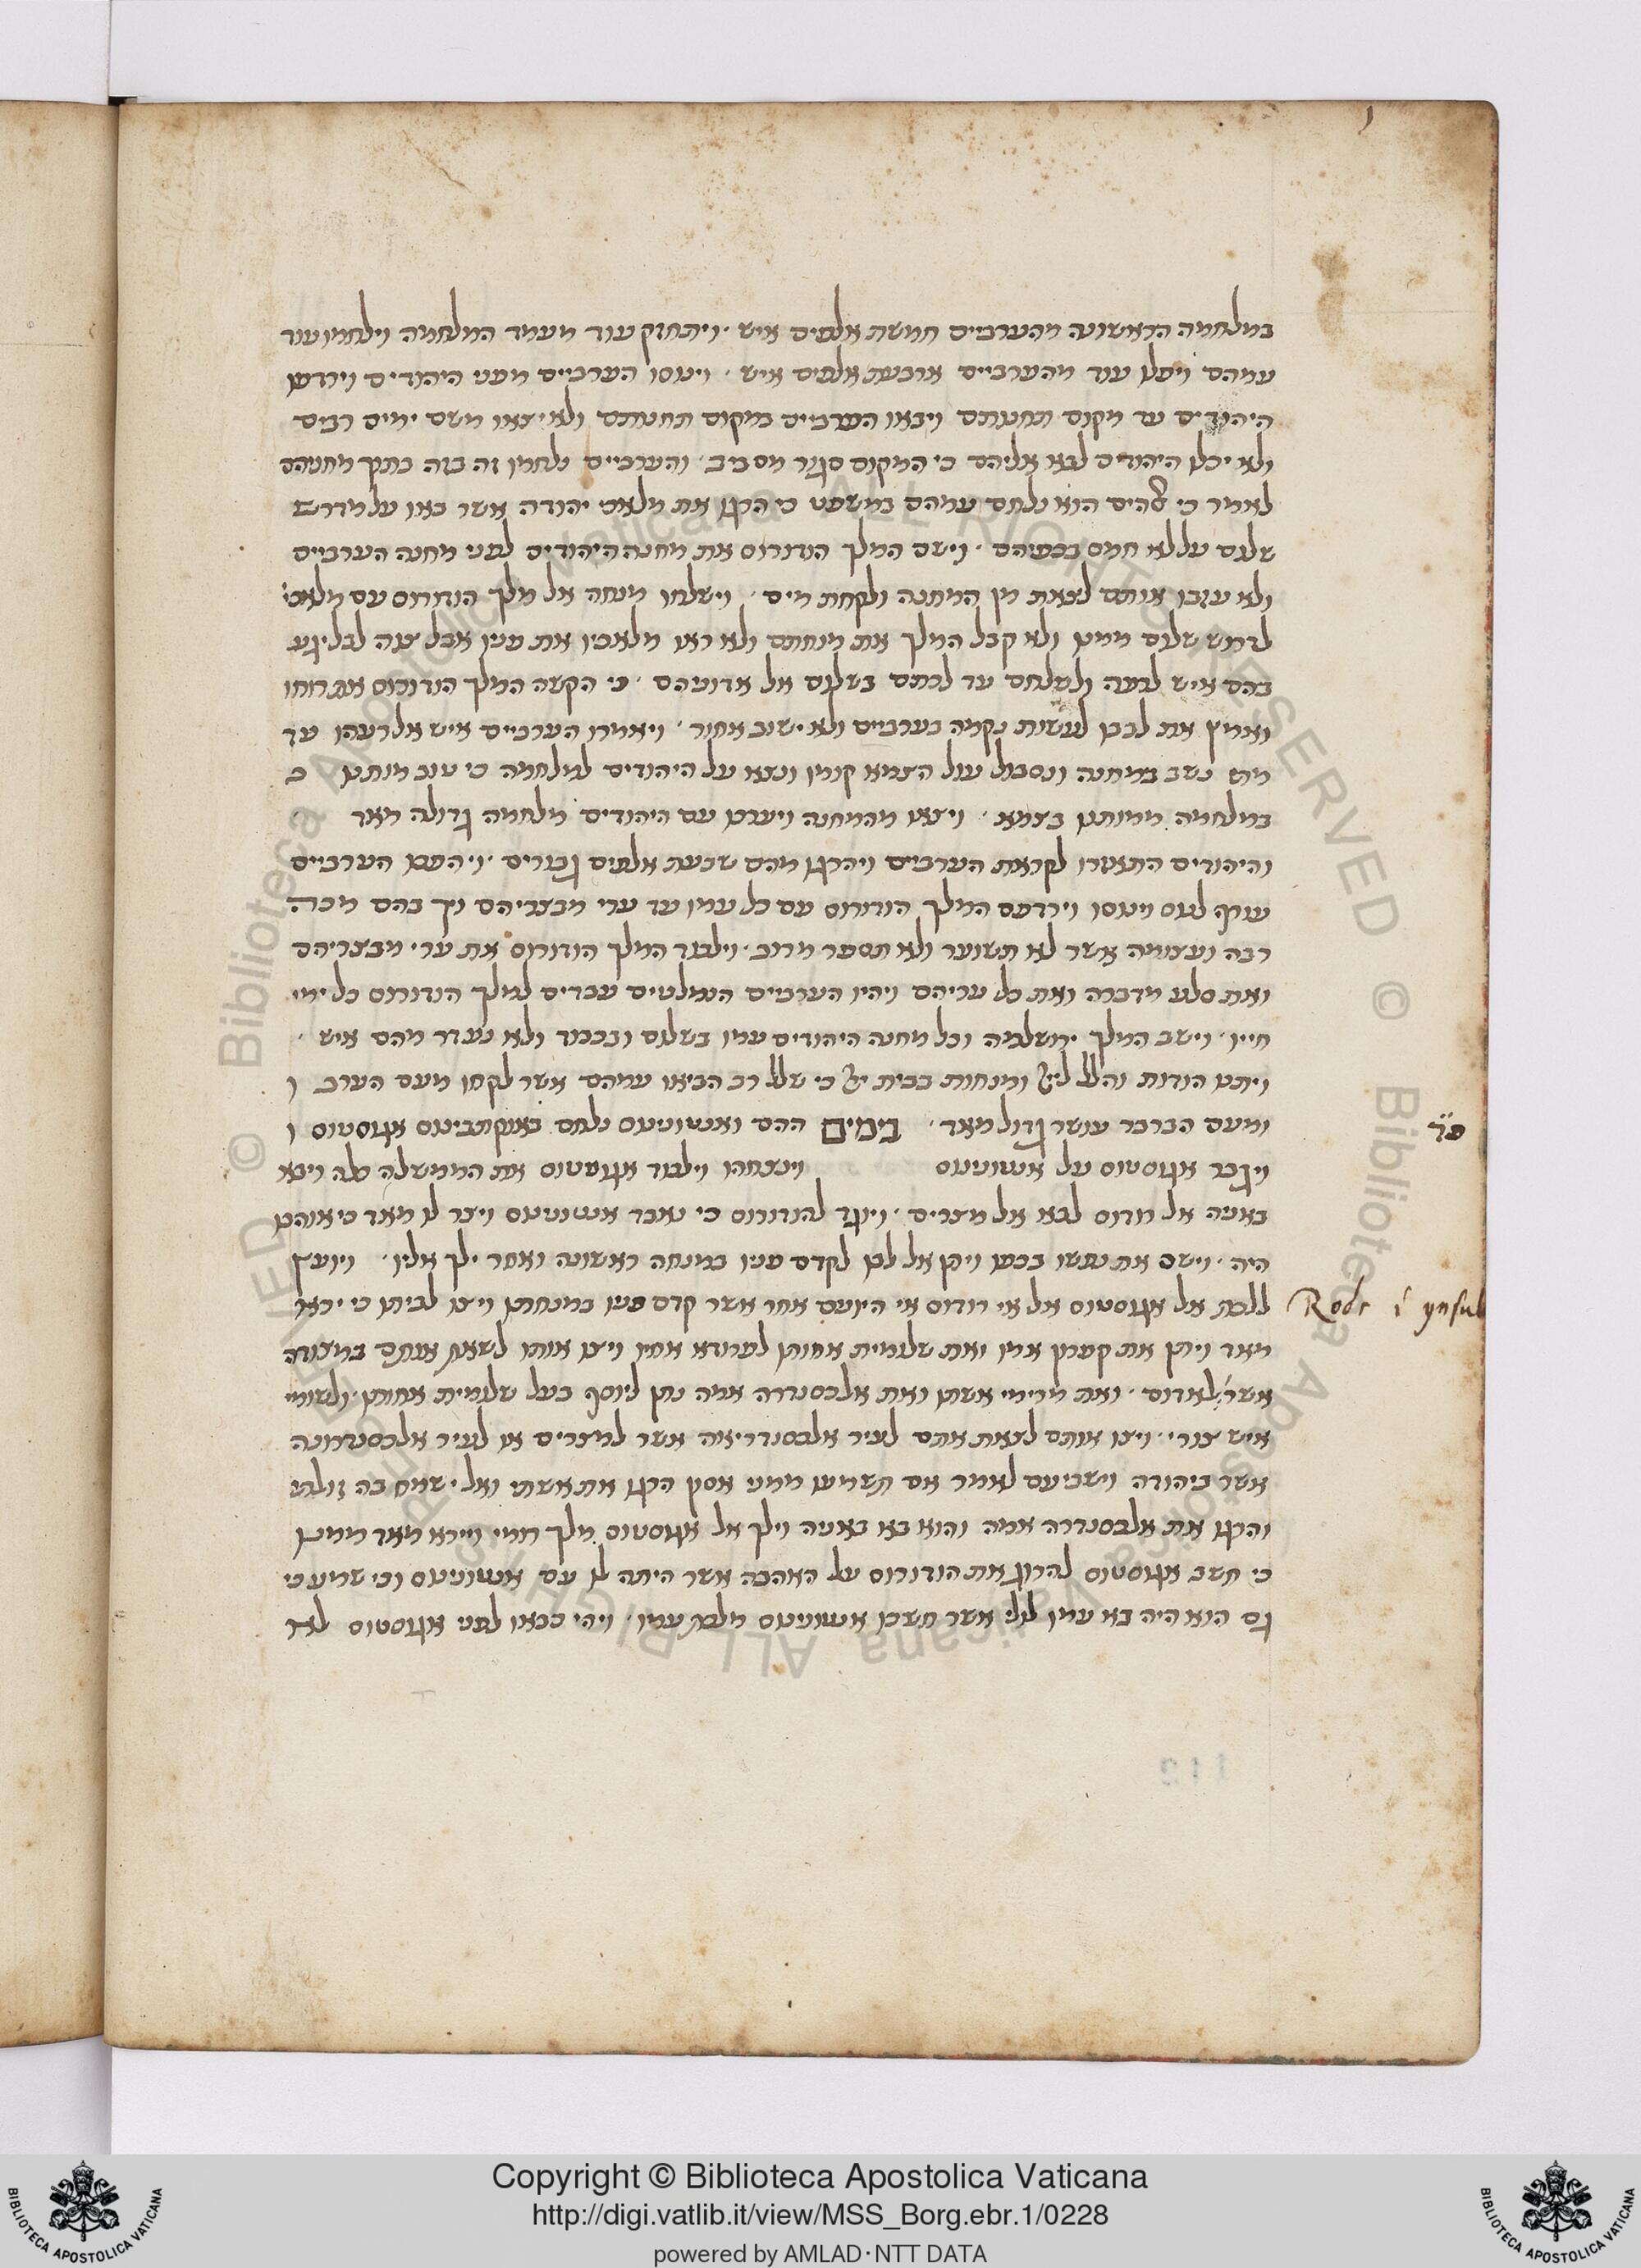 במלחמה הראשונה מהערביים חמשת אלפים איש · ויתחזק עוד מעמד המלחמה וילחמו עוד
עמהם ויפלו עוד מהערביים ארבעת אלפים איש · וינוסו הערביים מפני היהודים וירדפו
היהודים עד מקום תחנתם ויבאו הערביים במקום תחנותם ולא יצאו משם ימים רבים
ולא יכלו היהודים לבא אליהם כי המקום סגור מסביב · והערביים נלחמו זה בזה בתוך מחניהם
לאמר כי הוא נלחם עמהם במשפט כי הרגו את מלאכי יהודה אשר באו על מדרש
שלום על לא חמס בכפיהם · וישם המלך הורודוס את מחנה היהודים לפני מחנה הערביים
ולא עזבו אותם לצאת מן המחנה ולקחת מים · וישלחו מנחה אל מלך הורודוס עם מלאכי
לדרוש שלום ממנו ולא קבל המלך את מנחתם ולא ראו מלאכיו את פניו אבל צוה לבל יגע
בהם איש לרעה ולשלחם עד לכתם בשלום אל אדוניהם · כי הקשה המלך הורודוס את רוחו
ואמץ את לבבו לעשות נקמה בערביים ולא ישוב אחור · ויאמרו הערביים איש אל רעהו עד
מתי נשב במחנה ונסבול עול הצמא קומו ונצא על היהודים למלחמה כי טוב מותנו
במלחמה ממותנו בצמא · ויצאו מהמחנה ויערכו עם היהודים מלחמה גדולה מאד
והיהודים התאזרו לקראת הערביים ויהרגו מהם שבעת אלפים גבורים · ויהפכו הערביים
עורף לנוס וינוסו וירדפם המלך הורודוס עם כל עמו עד ערי מבצריהם ויך בהם מכה
רבה ועצומה אשר לא תשוער ולא תסופר מרוב · וילכוד המלך הורודוס את ערי מבצריהם
ואת סלע מדברה ואת כל עריהם ויהיו הערביים הנמלטים עבדים למלך הורודוס כל ימי
חייו · וישב המלך ירושלמה וכל מחנה היהודים עמו בשלום ובכבוד ולא נעדר מהם איש ·
ויתנו הודות והלל ומנחות בבית כי שלל רב הביאו עמהם אשר לקחו מעם הערב
ומעם הברבר עושר גדול מאד · בימים ההם ואנטוניאוס נלחם באוקתביאנוס אגוסטוס
ויגבר אגוסטוס על אנטוניאוס וינצחהו וילכוד אגוסטוס את הממשלה כלה ויבא
באניה אל רודוס לבא אל מצרים · ויוגד להורודוס כי נאבד אנטוניאוס ויצר לו מאד כי אוהבו
היה · וישם את נפשו בכפו ויתן אל לבו לקדם פניו במנחה ראשונה ואחר ילך אליו · ויועץ
ללכת אל אגוסטוס אל אי רודוס אי היונים אחר אשר קדם פניו במנחתו ויצו לביתו כי ירא
מאד ויתן את קפרון אמו ואת שלומית אחותו לפרורא אחיו ויצו אותו לשאת אותם במצודה
אשר לאדום · ואת מרימי אשתו ואת אלכסנדרה אמה נתן ליוסף בעל שלומית אחותו · ולשומי
איש צורי · ויצו אותם לצאת אתם לעיר אלכסנדריאה אשר למצרים או לעיר אלכסנדרונה
אשר ביהודה וישביעם לאמר אם תשמעו ממני אסון הרגו את אשתי ואל ישמח בה זולתי
והרגו את אלכסנדרה אמה והוא בא באניה וילך אל אגוסטוס מלך רומי ויירא מאד ממנו
כי חשב אגוסטוס להרוג את הורודוס על האהבה אשר היתה לו עם אנטוניאוס וכי שמע כי
גם הוא היה בא עמו לולי אשר חשכו אנטוניאוס מלכת עמו · ויהי בבאו לפני אגוסטוס
פד
Rode